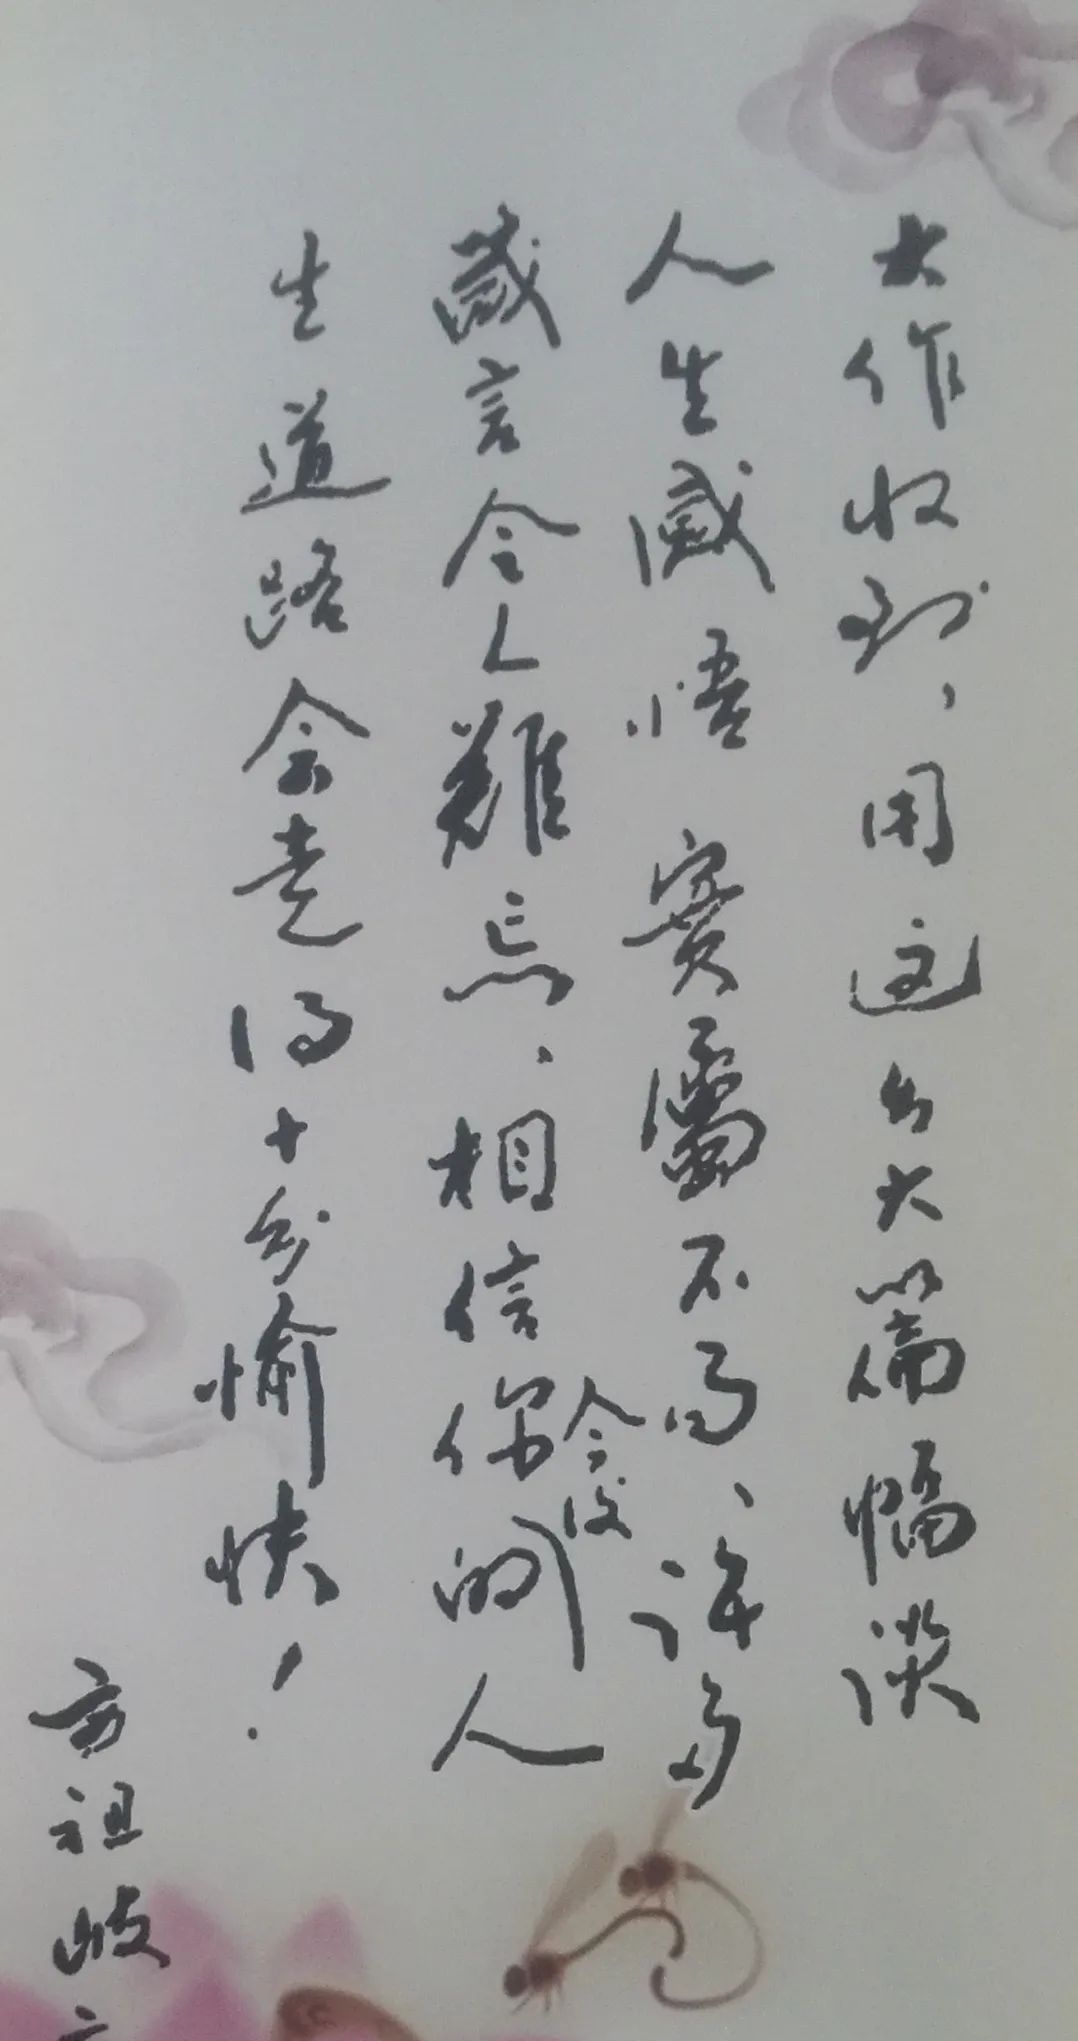 大作收到，用这么大篇幅谈
人生感悟實屬不易、许多
箴言令人難忘，相信你今後的人
生道路会走得十分愉快！
方祖岐